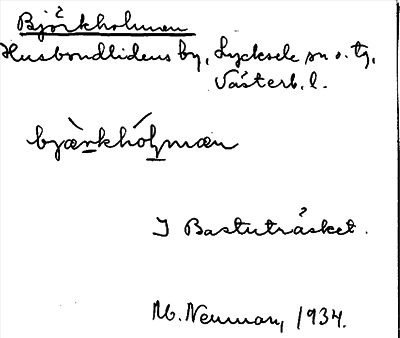 Björkholmen
Husbondlidens by, Lycksele sn o. tg,
Västerb. l.
bjæ̀rkhól̥mæn
I Bastuträsket.
M. Neuman, 1934.